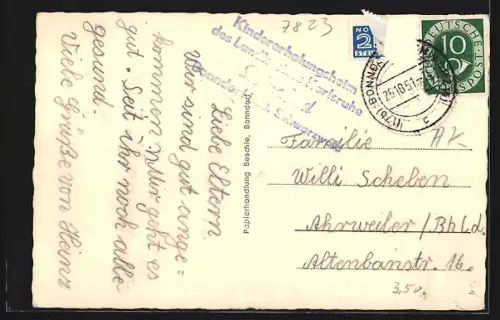 7823
Kindererholungsheim
des Landkreises Karlsruhe
Bonndorf i. Schwarzwald
NO
2
STEU
DEUTSCHE
10
POST
(17b) BONNDORF
25.10.51
c
Liebe Eltern.
Wir sind gut ange=
kommen. Mir geht es
gut. Seit ihr noch alle
gesund.
Viele Grüße von Heinz
Papierhandlung Beschle, Bonndorf
AK
Familie
Willi Scheben
Ahrweiler/Bhld.
Altenbaustr. 16.
3,50